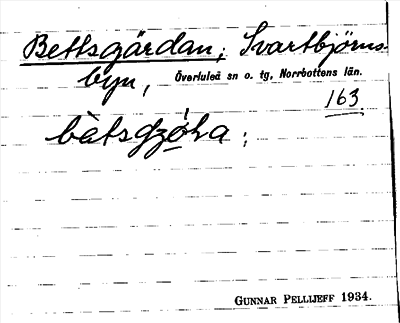 Bettsgärdan; Svartbjörns-
byn, Överluleå sn o. tg, Norrbottens län.
163
bètsgzo̱ha;
GUNNAR PELLIJEFF 1934.